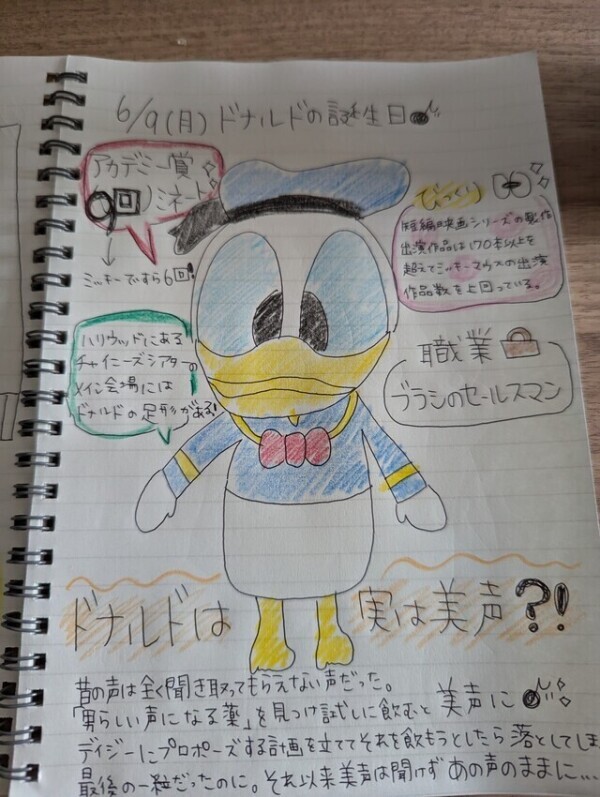 6/9(月)ドナルドの誕生日
アカデミー賞
9回ノミネート
ミッキーですら6回!
びっくり
短編映画シリーズの製作
出演作品は170本以上を
超えてミッキーマウスの出演
作品数を上回っている。
ハリウッドにある
チャイニーズシアターの
メイン会場には
ドナルドの足形がある!
職業
ブラシのセールスマン
ドナルドは 実は美声?!
昔の声は全く聞き取ってもらえない声だった。
「男らしい声になる薬」を見つけ試しに飲むと美声に
デイジーにプロポーズする計画を立ててそれを飲もうとしたら落としてしま
最後の一粒だったのに。それ以来美声は聞けずあの声のままに…